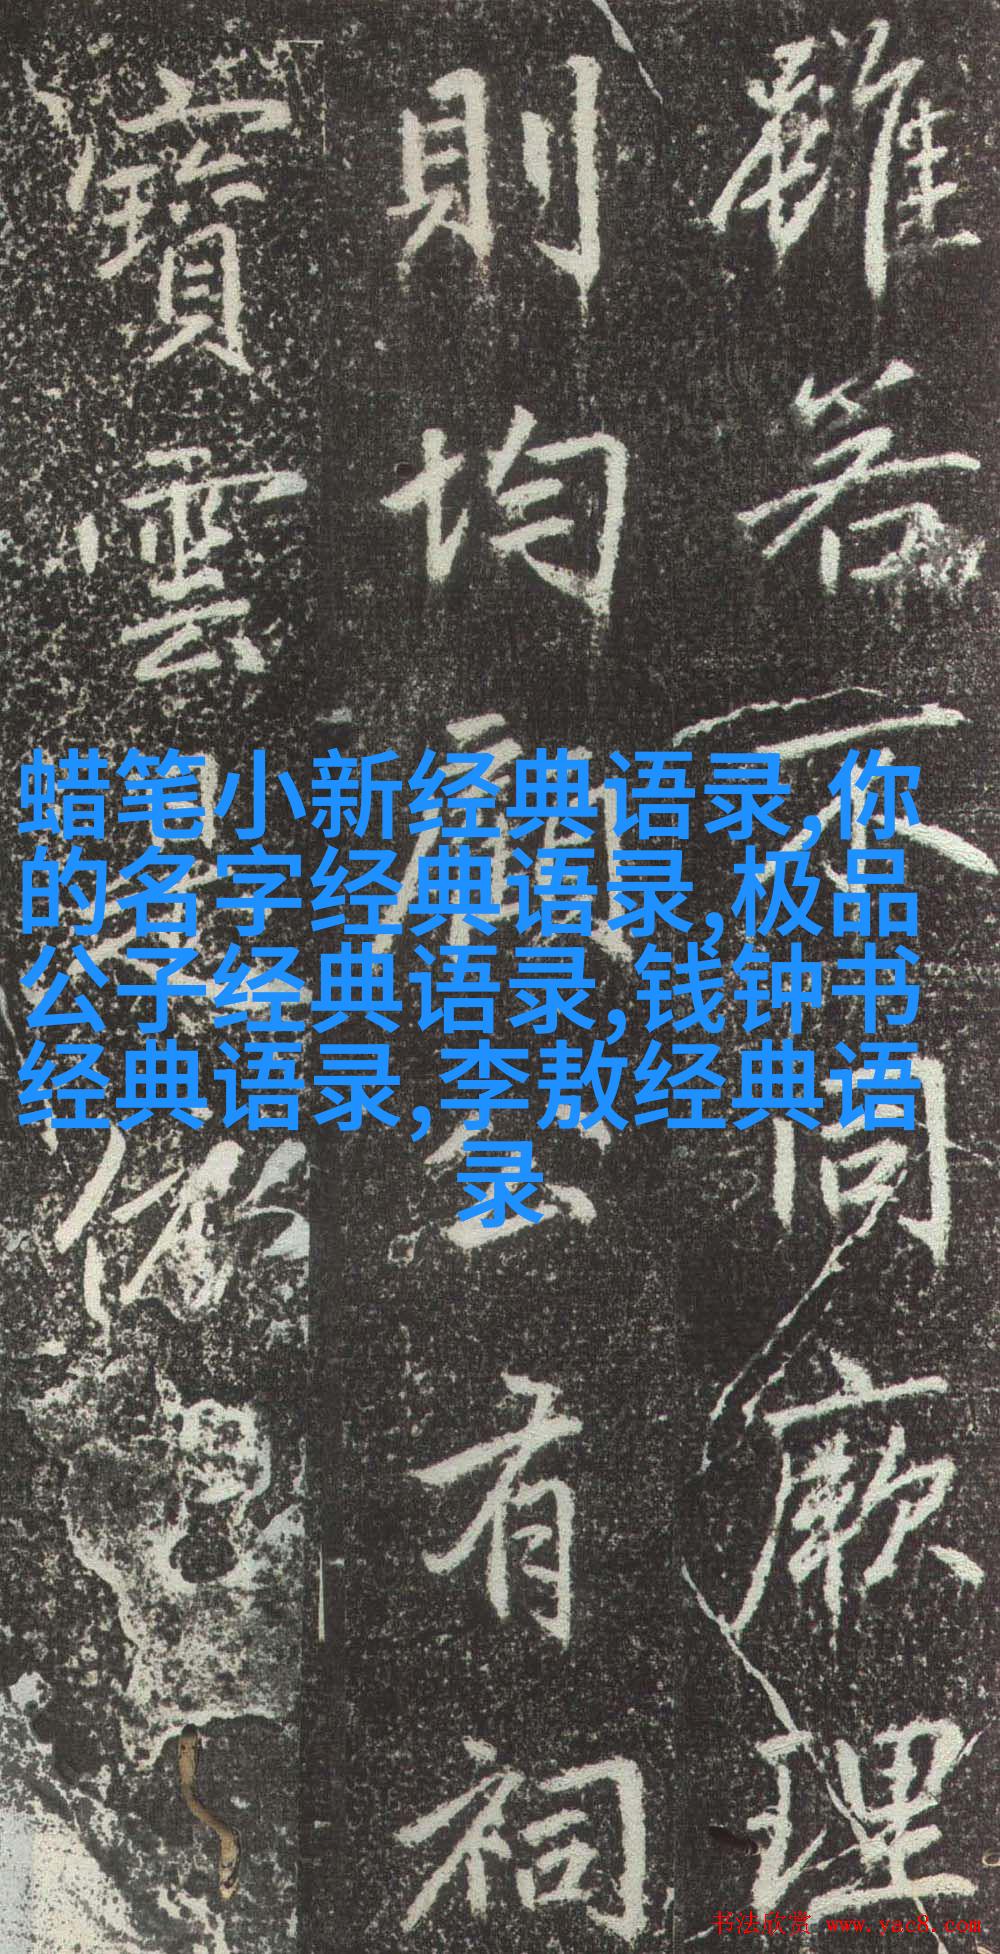 雖若不同厥理
則均有祠
寶雲
蜡笔小新经典语录,你
的名字经典语录,极品
公子经典语录,钱钟书
经典语录,李敖经典语
录
书法欣赏 www.yac8.com